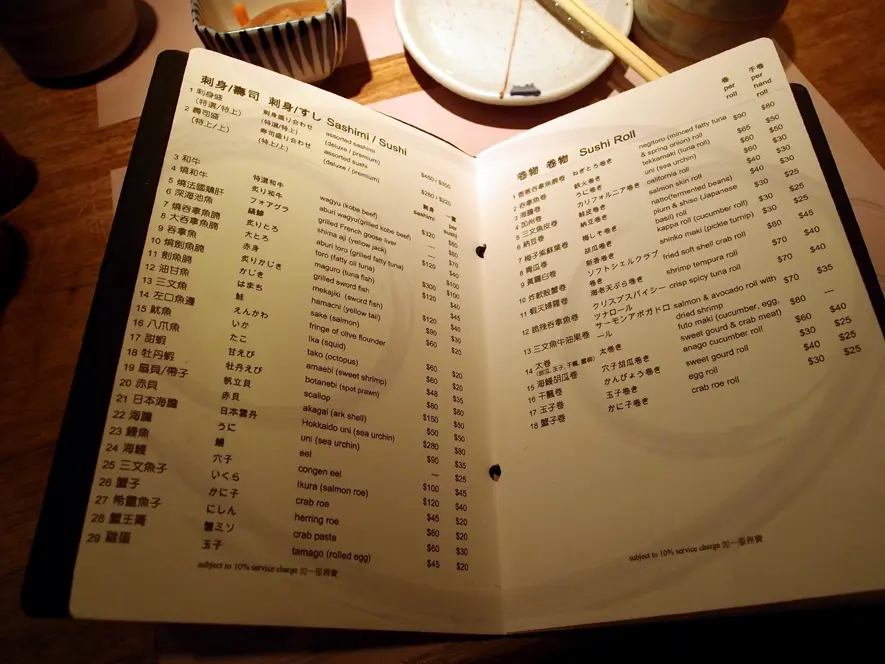 刺身/壽司 刺身/すし Sashimi / Sushi
1 刺身盛 刺身盛り合わせ assorted sashimi
(特選/特上) (特選/特上) (deluxe / premium)
2 壽司盛 寿司盛り合わせ assorted sushi
(特上/上) (特上/上) (deluxe / premium) $280 / $220
刺身 sashimi 一貫 per sushi
3 和牛 特選和牛 wagyu (kobe beef) $320
4 燒和牛 炙り和牛 aburi wagyu(grilled kobe beef)
5 燒法國鵝肝 フォアグラ grilled French goose liver
6 深海池魚 縞鰺 shima aji (yellow jack)
7 燒吞拿魚腩 炙りとろ aburi toro (grilled fatty tuna)
8 大吞拿魚腩 大とろ toro (fatty oil tuna) $300 $100
9 吞拿魚 赤身 maguro (tuna fish) $120 $40
10 燒劍魚腩 炙りかじき grilled sword fish
11 劍魚腩 かじき mekajiki (sword fish)
12 油甘魚 はまち hamachi (yellow tail)
13 三文魚 鮭 sake (salmon)
14 左口魚邊 えんがわ fringe of olive flounder
15 魷魚 いか Ika (squid)
16 八爪魚 たこ tako (octopus)
17 甜蝦 甘えび amaebi (sweet shrimp)
18 牡丹蝦 牡丹えび botanebi (spot prawn)
19 扇貝/帶子 帆立貝 scallop
20 赤貝 赤貝 akagai (ark shell) $150 $50
21 日本海膽 日本雲丹 Hokkaido uni (sea urchin) $280 $80
22 海膽 うに uni (sea urchin) $90 $35
23 鰻魚 鰻 eel — $25
24 海鰻 穴子 congen eel $100 $45
25 三文魚子 いくら Ikura (salmon roe) $120 $40
26 蟹子 かに子 crab roe $45 $20
27 希靈魚子 にしん herring roe $60 $20
28 蟹王膏 蟹ミソ crab pasta $60 $30
29 雞蛋 玉子 tamago (rolled egg) $45 $20
subject to 10% service charge 加一服務費
卷物 巻物 Sushi Roll
卷 per roll 手卷 per hand roll
1 香蔥吞拿魚腩卷 ねぎとろ巻き negitoro (minced fatty tuna & spring onion) roll $90 $80
2 吞拿魚卷 鉄火巻き tekkamaki (tuna roll) $65 $50
3 海膽卷 うに巻き uni (sea urchin)
4 加州卷 カリフォルニア巻き california roll
5 三文魚皮卷 鮭皮巻き salmon skin roll
6 納豆卷 納豆巻き natto(fermented beans)
7 梅子紫蘇葉卷 梅しそ巻き plum & shiso (Japanese basil) roll
8 青瓜卷 胡瓜巻き kappa roll (cucumber roll)
9 黃蘿白卷 新香巻き shinko maki (pickle turnip)
10 炸軟殼蟹卷 ソフトシェルクラブ巻き fried soft shell crab roll
11 蝦天婦羅卷 海老天ぷら巻き shrimp tempura roll
12 脆辣吞拿魚卷 クリスプスパイシーツナロール crisp spicy tuna roll
13 三文魚牛油果卷 サーモンアボガドロール salmon & avocado roll with dried shrimp $70 $35
14 太卷 太巻き futo maki (cucumber, egg, sweet gourd & crab meat) $80 —
15 海鰻胡瓜卷 穴子胡瓜巻き anago cucumber roll $60 $40
16 干瓢卷 かんぴょう巻き sweet gourd roll $45 $25
17 玉子卷 玉子巻き egg roll $30 $25
18 蟹子卷 かに子巻き crab roe roll $30 $25
subject to 10% service charge 加一服務費